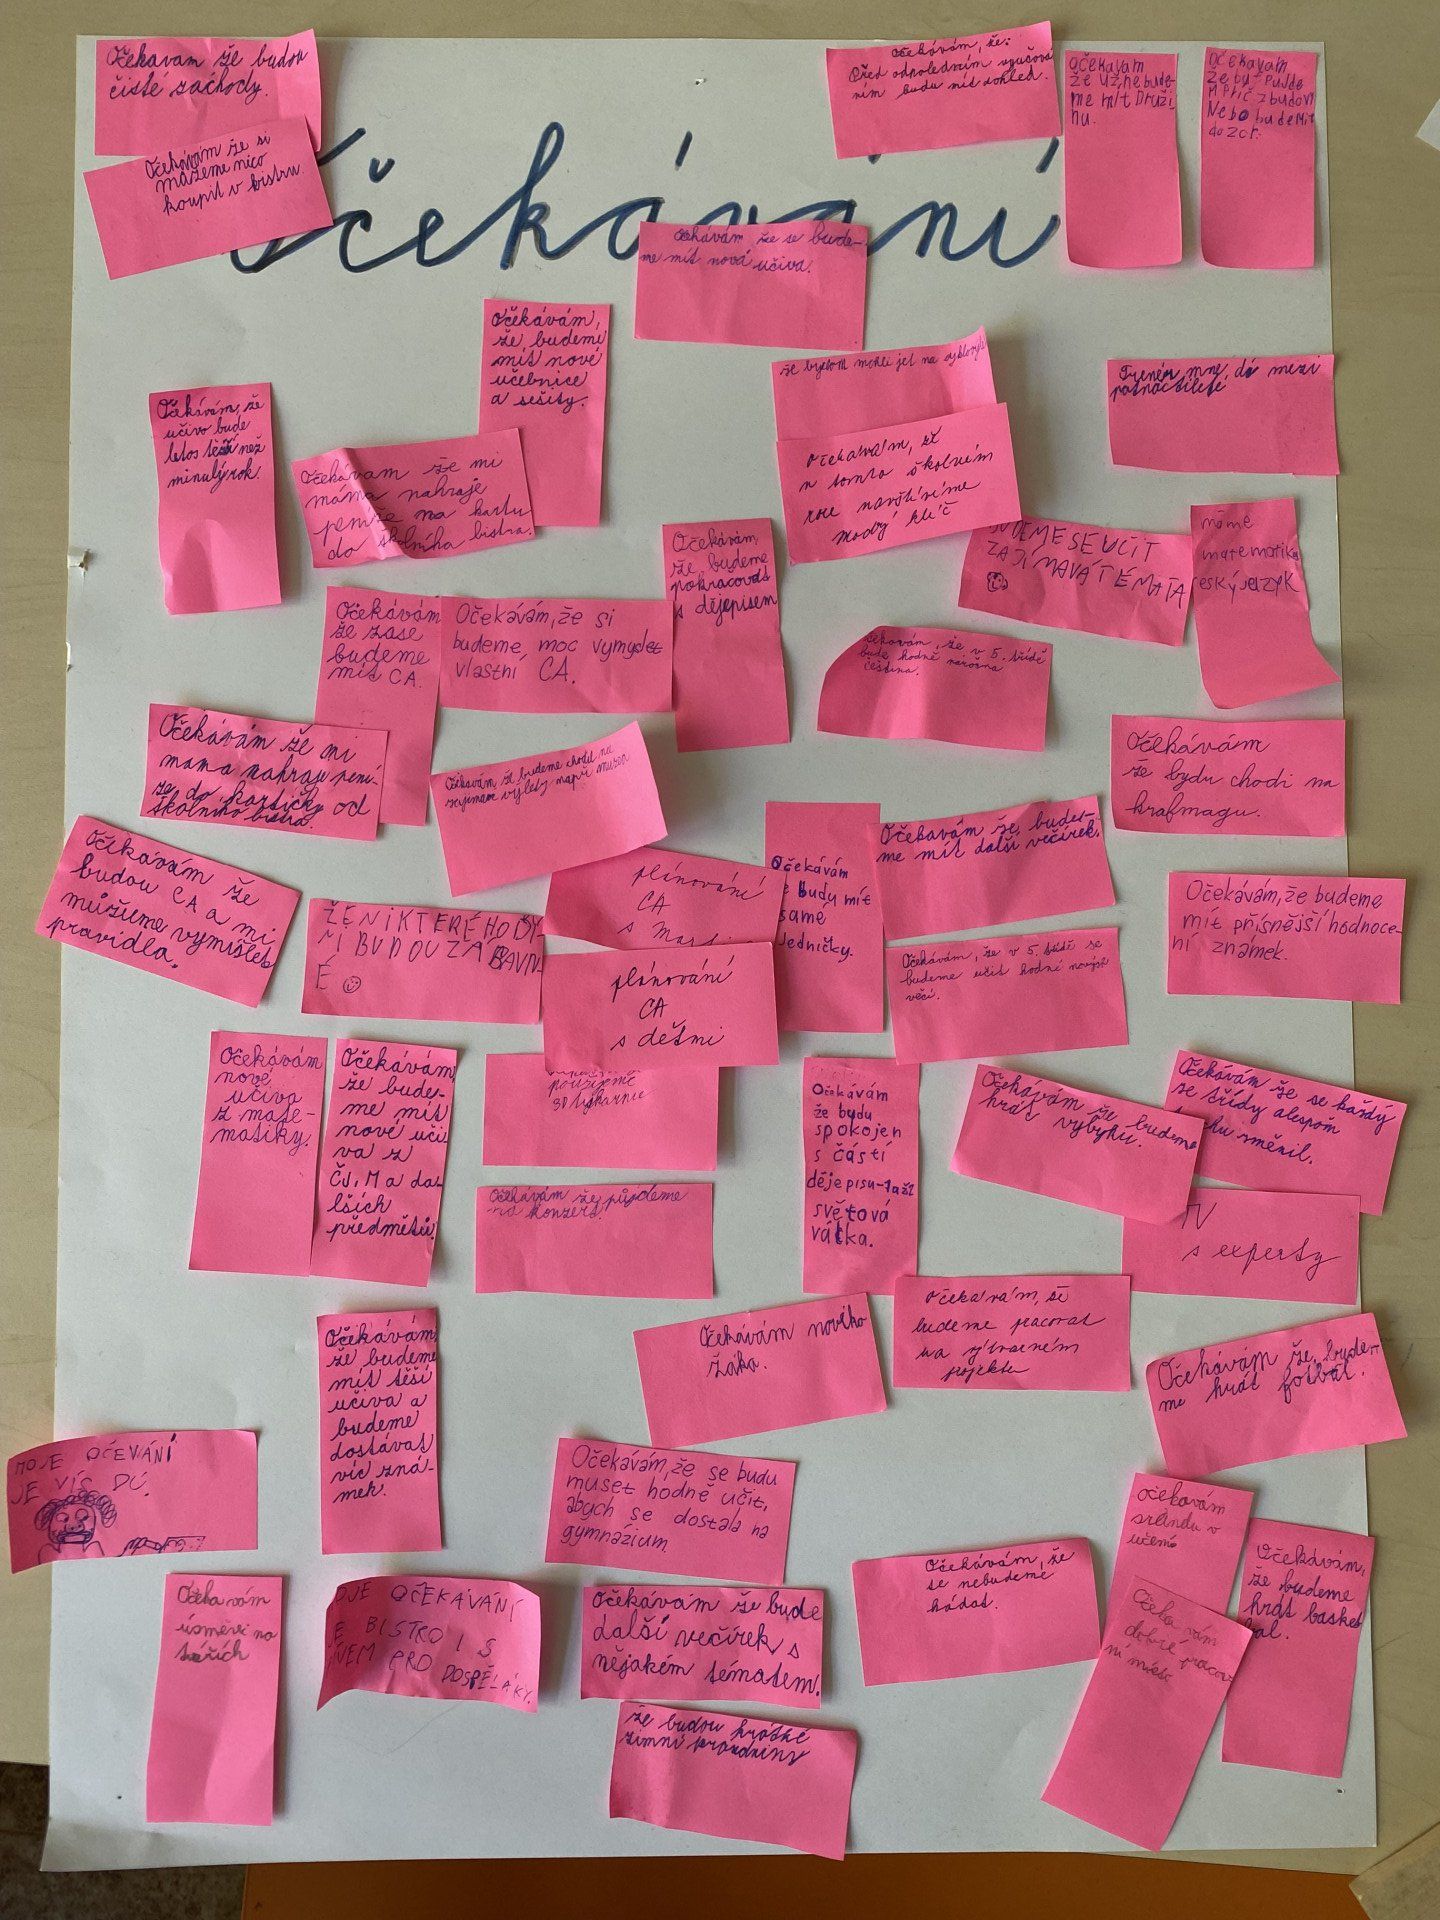 Očekávání
Očekavam že budou
čisté záchody.
Očekávám že si
můžeme něco
koupit v bistru.
Očekávám, že:
Před odpoledním vyučová
ním budu mít dohled.
Očekavam
že už nebude-
me mít Druži
nu.
Očekavam
Nebo bude Mit
dozor.
Očekávám že se bude-
me mít nová učiva.
Očekávám,
že budeme
mít nové
učebnice
a sešity.
že bychom mohli jet na
Trenér mne dá mezi
patnáctileté
Očekávám, že
učivo bude
letos těší než
minulý rok.
Očekávam že mi
máma nahraje
peníze na kartu
do školního bistra.
Očekávám, že
v tomto školním
roce navštívíme
Modrý klíč
BUDEME SE UČIT
ZAJÍMAVÁ TÉMATA
máme
matematika
český jazyk
Očekávám,
že budeme
pokračovat
s dějepisem
Očekávám
že zase
budeme
mít CA.
Očekávám, že si
budeme moc vymyslet
vlastní CA.
Očekávám, že v 5. třídě
bude hodně náročná
čeština.
Očekávám že mi
mama nahraju pení-
ze do kartičky od
školního bistra.
Očekávám že budeme chodit na
zajímavé výlety např muzea
Očekávám
že bydu chodi na
krafmagu.
Očekávám že
budou CA a mi
můžume vymíšlet
pravidla.
ŽE NIKTERÉ HODY
NI BUDOU ZÁBAVN-
É
plánování
CA
s
plánování
CA
s dětmi
Očekávám
že budu mít
samé
jedničky.
Očekavám že bude-
me mít další večírek.
Očekávám, že v 5. třídě se
budeme učit hodně nových
věcí.
Očekávám, že budeme
mít přísnější hodnoce-
ní známek.
Očekávám
nové
učiva
z mate-
matiky.
Očekávám,
že bude-
me mít
nové uči
va z
ČJ, M a da-
lších
předmětů.
použijeme
3D tiskárnu
Očekávám že půjdeme
na konzert.
Očekávám
že budu
spokojen
s částí
dějepisu-1 a 2
světová
válka.
Očekávám že budeme
hrát vybyku.
Očekávám že se každý
ze třídy alespoň
trochu změnil.
TV
s experty
Očekávám nového
žáka.
Očekávám, že
budeme pracovat
na výtvarném
projektu
Očekávám že bude-
me hrát fotbal.
Očekávám,
že budeme
mít těší
učiva a
budeme
dostávat
víc zná-
mek.
MOJE OČEVÁNÍ
JE VÍC DÚ.
Očekávám, že se budu
muset hodně učit,
abych se dostala na
gymnázium.
očekávám
srandu v
učení
Očekávám,
že budeme
hrát basket
bal.
Očekávám, že
se nebudeme
hádat.
Očekávám
dobré pracov
ní místo
Očekávám
úsměvi na
tvářích
MOJE OČEKÁVÁNÍ
JE BISTRO I S
PIVEM PRO DOSPĚLÁKY.
Očekávám že bude
další večírek s
nějakém tématem.
že budou krátké
zimní prázdniny